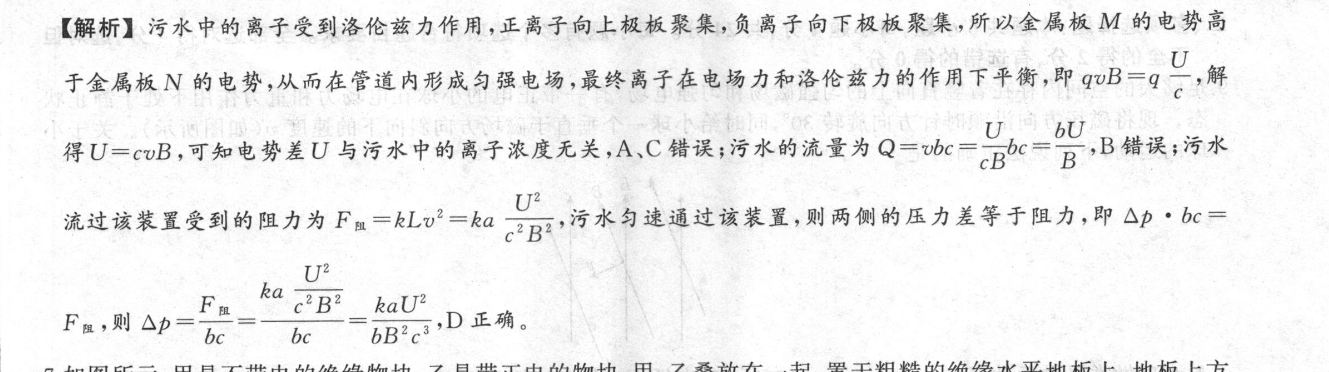 【解析】污水中的离子受到洛伦兹力作用,正离子向上极板聚集,负离子向下极板聚集,所以金属板 M 的电势高
于金属板 N 的电势,从而在管道内形成匀强电场,最终离子在电场力和洛伦兹力的作用下平衡,即 qvB=q U/c,解
得U=cvB,可知电势差U 与污水中的离子浓度无关,A、C 错误;污水的流量为 Q=vbc=U/(cB) bc=bU/B,B 错误;污水
流过该装置受到的阻力为 F阻=kLv²=ka U²/(c²B²),污水匀速通过该装置,则两侧的压力差等于阻力,即 Δp·bc=
F阻,则 Δp=F阻/(bc)=(ka U²/(c²B²))/(bc)=kaU²/(bB²c³),D 正确。